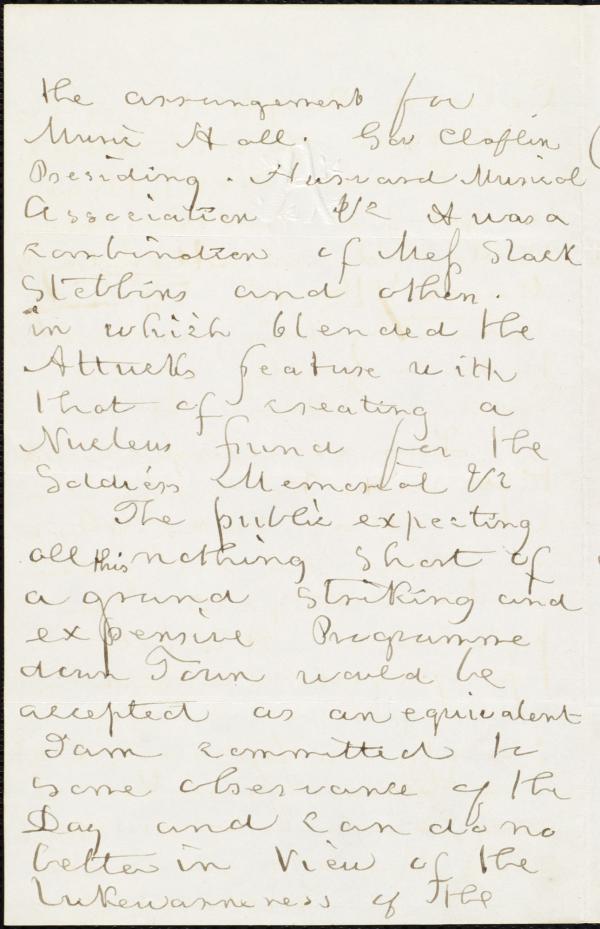 the arrangement for
Music Hall. Gov Claflin
Presiding. Harvard Musical
Association &c It was a
combination of Mess Slack
Stebbins and others.
in which blended the
Attucks feature with
that of creating a
Nucleus fund for the
Soldiers Memorial &c
The public expecting
all this nothing short of
a grand striking and
expensive Programme
down Town would be
accepted as an equivalent
I am committed to
some observance of the
Day and can do no
better in View of the
Lukewarmness of the